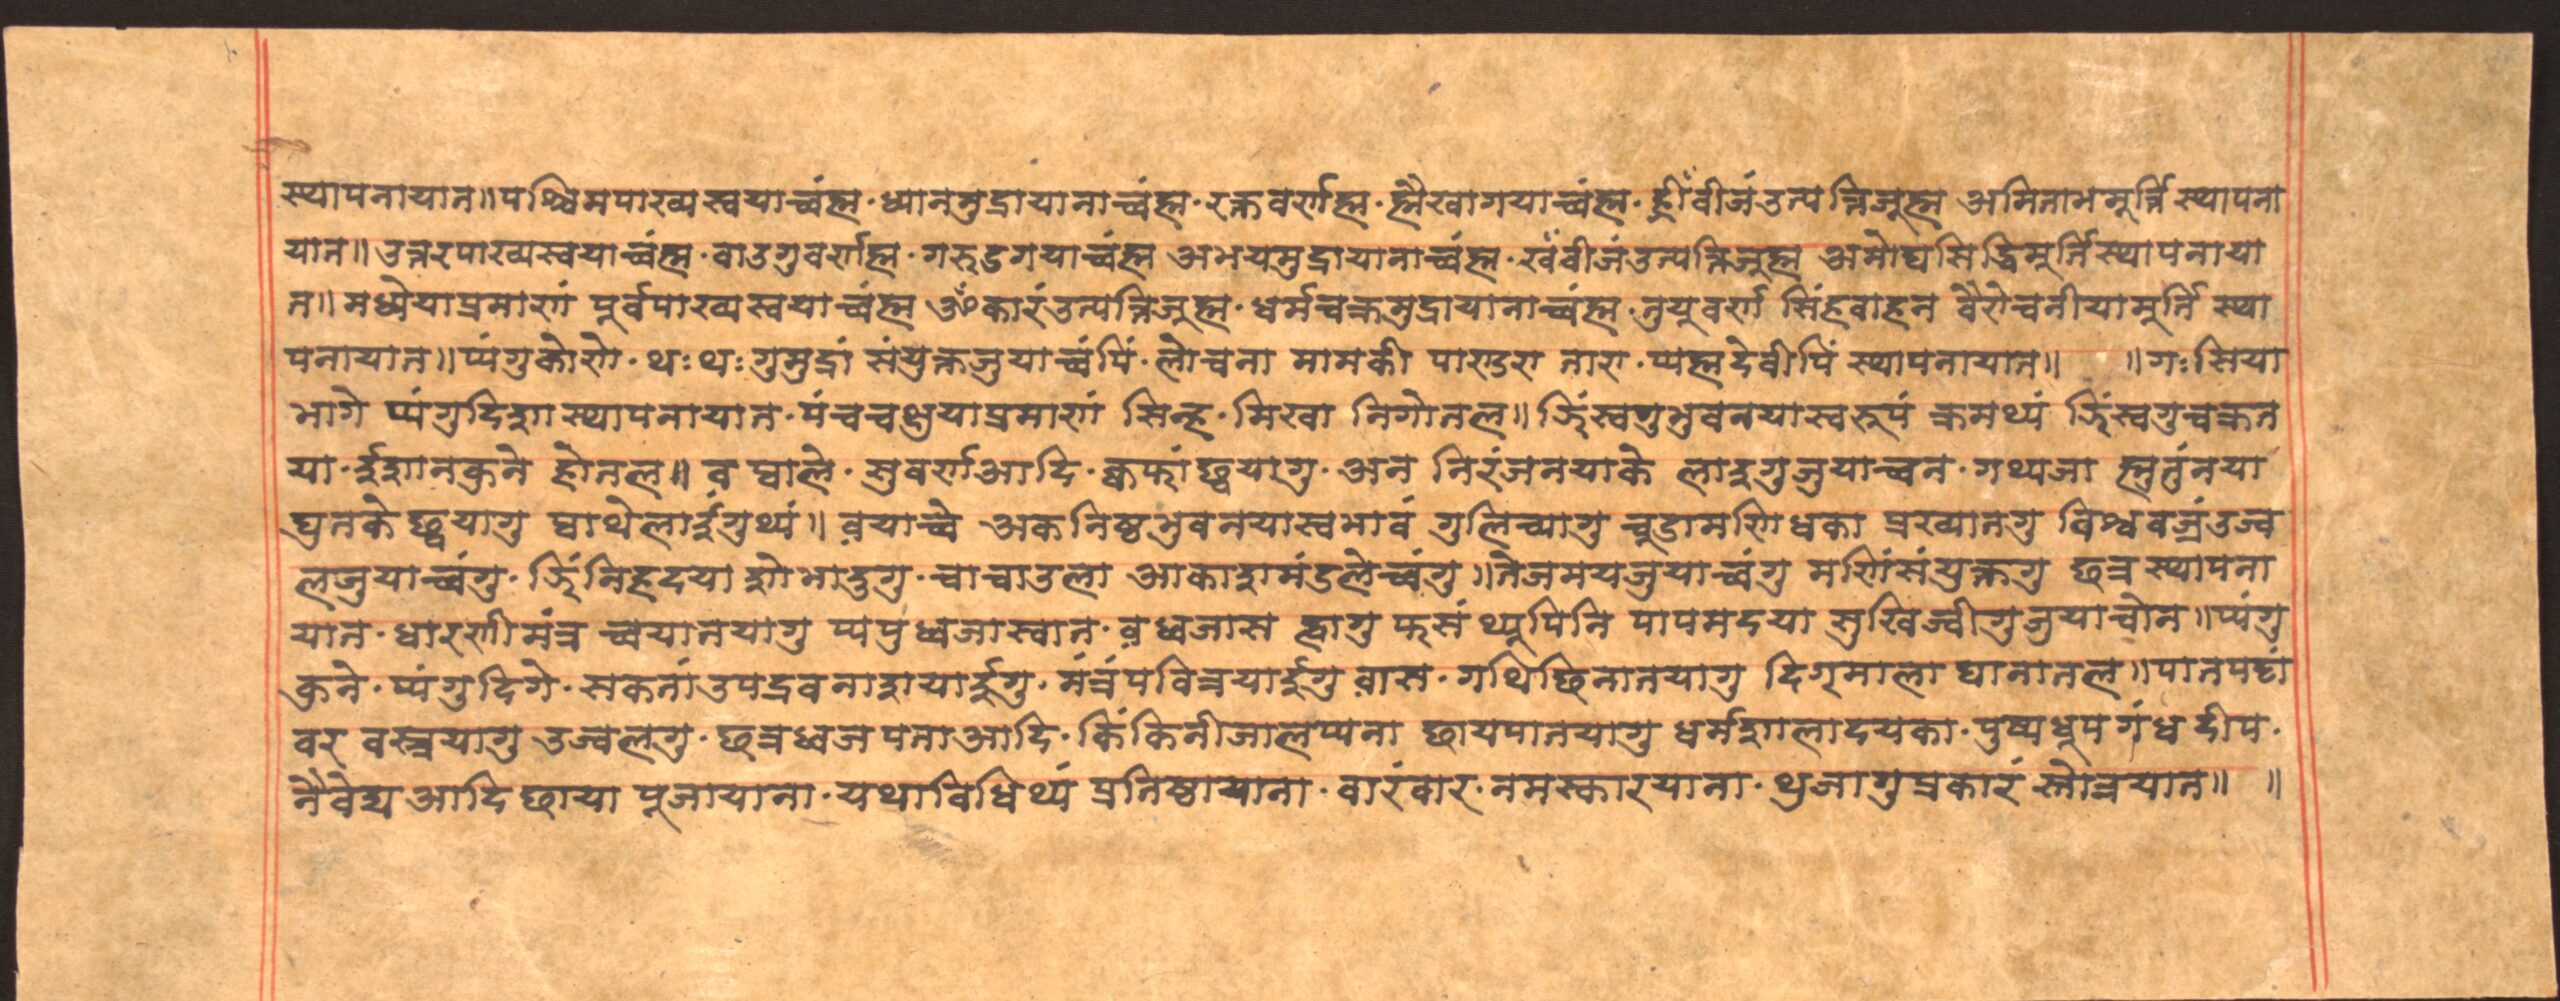 स्थापनायात॥पश्चिमपाखास्वयाच्वंह्म·ध्यानमुद्रायानाच्वंह्म·रक्तवर्णह्म·ह्मैखागयाच्वंह्म·ह्रीँवीजंउत्पन्निजुह्म अमिताभमुर्त्तिस्थापना
यात॥उत्तरपाखास्वयाच्वंह्म·वाउगुवर्णह्म·गरुडगयाच्वंह्म अभयमुद्रायानाच्वंह्म·खँवीजंउत्पन्निजुह्म अमोघसिद्धिमुर्त्तिस्थापनाया
त॥मध्येयाप्रमाणं पूर्वपाखास्वयाच्वंह्म ॐकारंउत्पन्निजुह्म·धर्मचक्रमुद्रायानाच्वंह्म·तुयुवर्ण सिंहवाहन वैरोचनीयामुर्त्ति स्था
पनायात॥प्यंगुकोणे·थःथःगुमुद्रां संयुक्तजुयाच्वंपिं·लोचना मामकी पाण्डरा तारा·प्यह्मदेवीपिं स्थापनायात॥ ॥गःसिया
भागे प्यंगुदिशास्थापनायात·पंचचक्षुयाप्रमाणं सिन्ह·मिखा निगोतल॥झिंस्वगुभुवनयास्वरूपं क्रमथ्यं झिंस्वगुचक्रत
या·र्इशानकुने होतल॥ व घाले·सुवर्णआदि· छुयागु·अन निरंजनयाके लाइगुजुयाच्वन·गथ्यजा ह्नुतुंनया
घुतके छुयागु घाथेलार्इगुथ्यं॥ वयाच्वे अकनिष्ठभुवनयास्वभावं गुलिच्यागु चूडामणिधका प्रख्यातगु विश्ववज्रंउज्व
लजुयाच्वंगु·झिंनिहृदया शोभादुगु·चाचाउला आकाशमंडलेच्वंगु॥तेजमयजुयाच्वंगु मणिसंयुक्तगु छत्र स्थापना
यात·धारणीमंत्र च्वयातयागु प्यपुध्वजास्वात·वध्वजास ह्वागु फसं थ्यूपिनि पापमदया सुखिज्वीगुजुयाचोन॥प्यंगु
कुने·प्यंगुदिगे·सकतांउपद्रवनाशयार्इगु·मंत्रंपवित्रयार्इगु वास·गथिछिनातयागु दिग्मालाघानातल॥पातपटां
वर वस्त्रयागु उज्वलगु·छत्रध्वजपताआदि·किंकिनीजालप्यना छायपातयागु धर्मशालादयका·पुष्पधूप गंध दीप·
नैवेद्य आदि छाया पूजायाना·यथाविधिथ्यं प्रतिष्ठायाना·वारंवार·नमस्कारयाना·थुजागुप्रकारं स्तोत्रयात॥ ॥